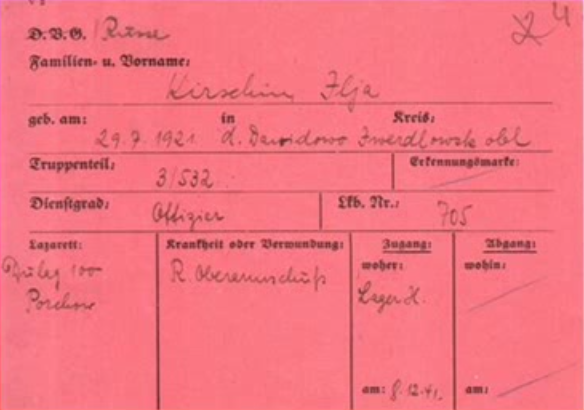 D.V.G. Russe
Familien- u. Vorname:
Kirschin, Ilja
geb. am: in Kreis:
29.7.1921 d. Dawidowo Swerdlowsk obl
Truppenteil: Erkennungsmarke:
3/532
Dienstgrad: Lkb. Nr.:
Offizier 705
Lazarett: Krankheit oder Verwundung: Zugang: Abgang:
woher: wohin:
Dulag 100 R. Oberarmschuß
Porchow Lager H.
am: 8.12.41. am: